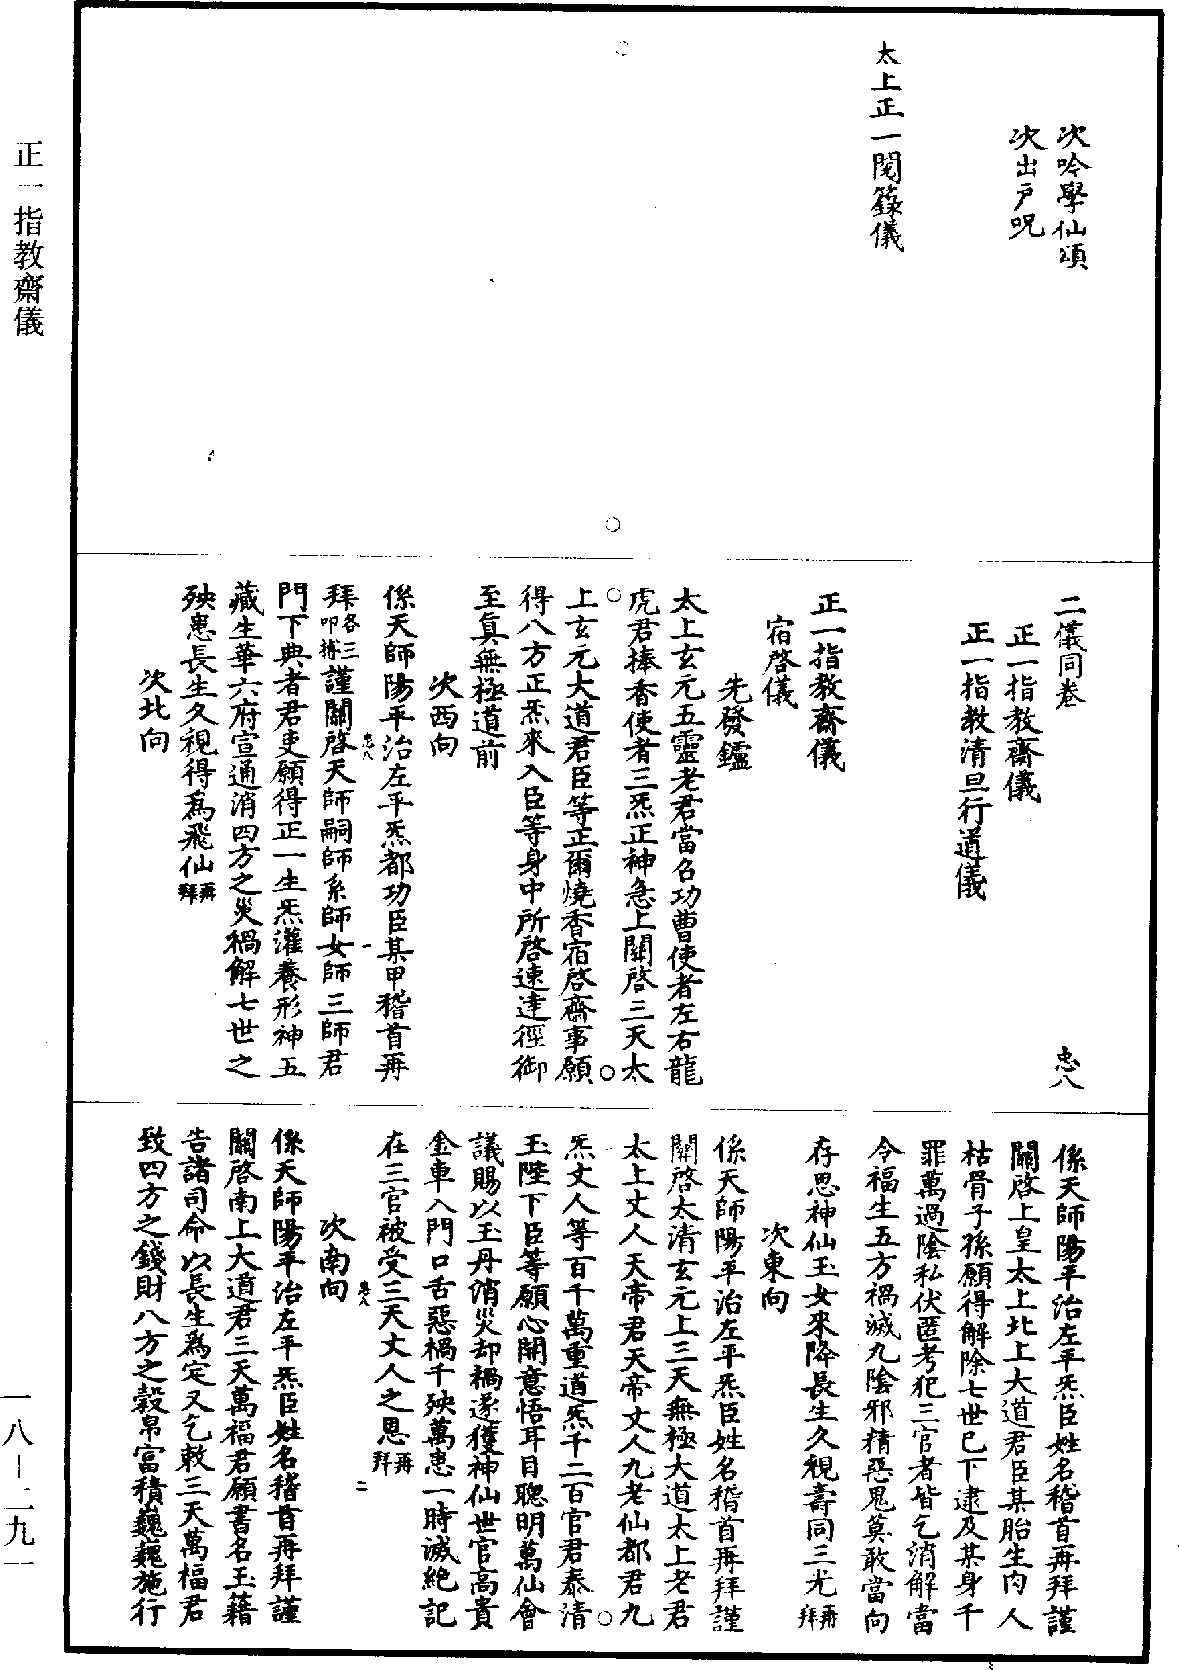 次吟學仙頌
次出戶呪
太上正一閱籙儀
二儀同卷 忠八
正一指教齋儀
正一指教清旦行道儀
正一指教齋儀
宿啓儀
先發鑪
太上玄元五靈老君當召功曹使者左右龍
虎君捧香使者三炁正神急上關啓三天太
上玄元大道君臣等正爾燒香宿啓齋事願
得八方正炁來入臣等身中所啓速達徑御
至眞無極道前
次西向
係天師陽平治左平炁都功臣某甲稽首再
拜各三叩搏謹關啓天師嗣師系師女師三師君
門下典者君吏願得正一生炁灌養形神五
藏生華六府宣通消四方之災禍解七世之
殃患長生久視得爲飛仙再拜
次北向
係天師陽平治左平炁臣姓名稽首再拜謹
關啓上皇太上北上大道君臣某胎生肉人
枯骨子孫願得解除七世已下逮及某身千
罪萬過陰私伏匿考犯三官者皆乞消解當
令福生五方禍滅九陰邪精惡鬼莫敢當向
存思神仙玉女來降長生久視壽同三光再拜
次東向
係天師陽平治左平炁臣姓名稽首再拜謹
關啓太清玄元上三天無極大道太上老君
太上丈人天帝君天帝丈人九老仙都君九
炁丈人等百千萬重道炁千二百官君泰清
玉陛下臣等願心開意悟耳目聰明萬仙會
議賜以玉丹消災却禍遂獲神仙世官高貴
金車入門口舌惡禍千殃萬患一時滅絕記
在三官被受三天丈人之恩再拜
次南向
係天師陽平治左平炁臣姓名稽首再拜謹
關啓南上大道君三天萬福君願書名玉籍
告諸司命以長生爲定又乞敕三天萬福君
致四方之錢財八方之穀帛富積巍巍施行
忠八
忠八 二
正一指教齋儀
一八—二九一